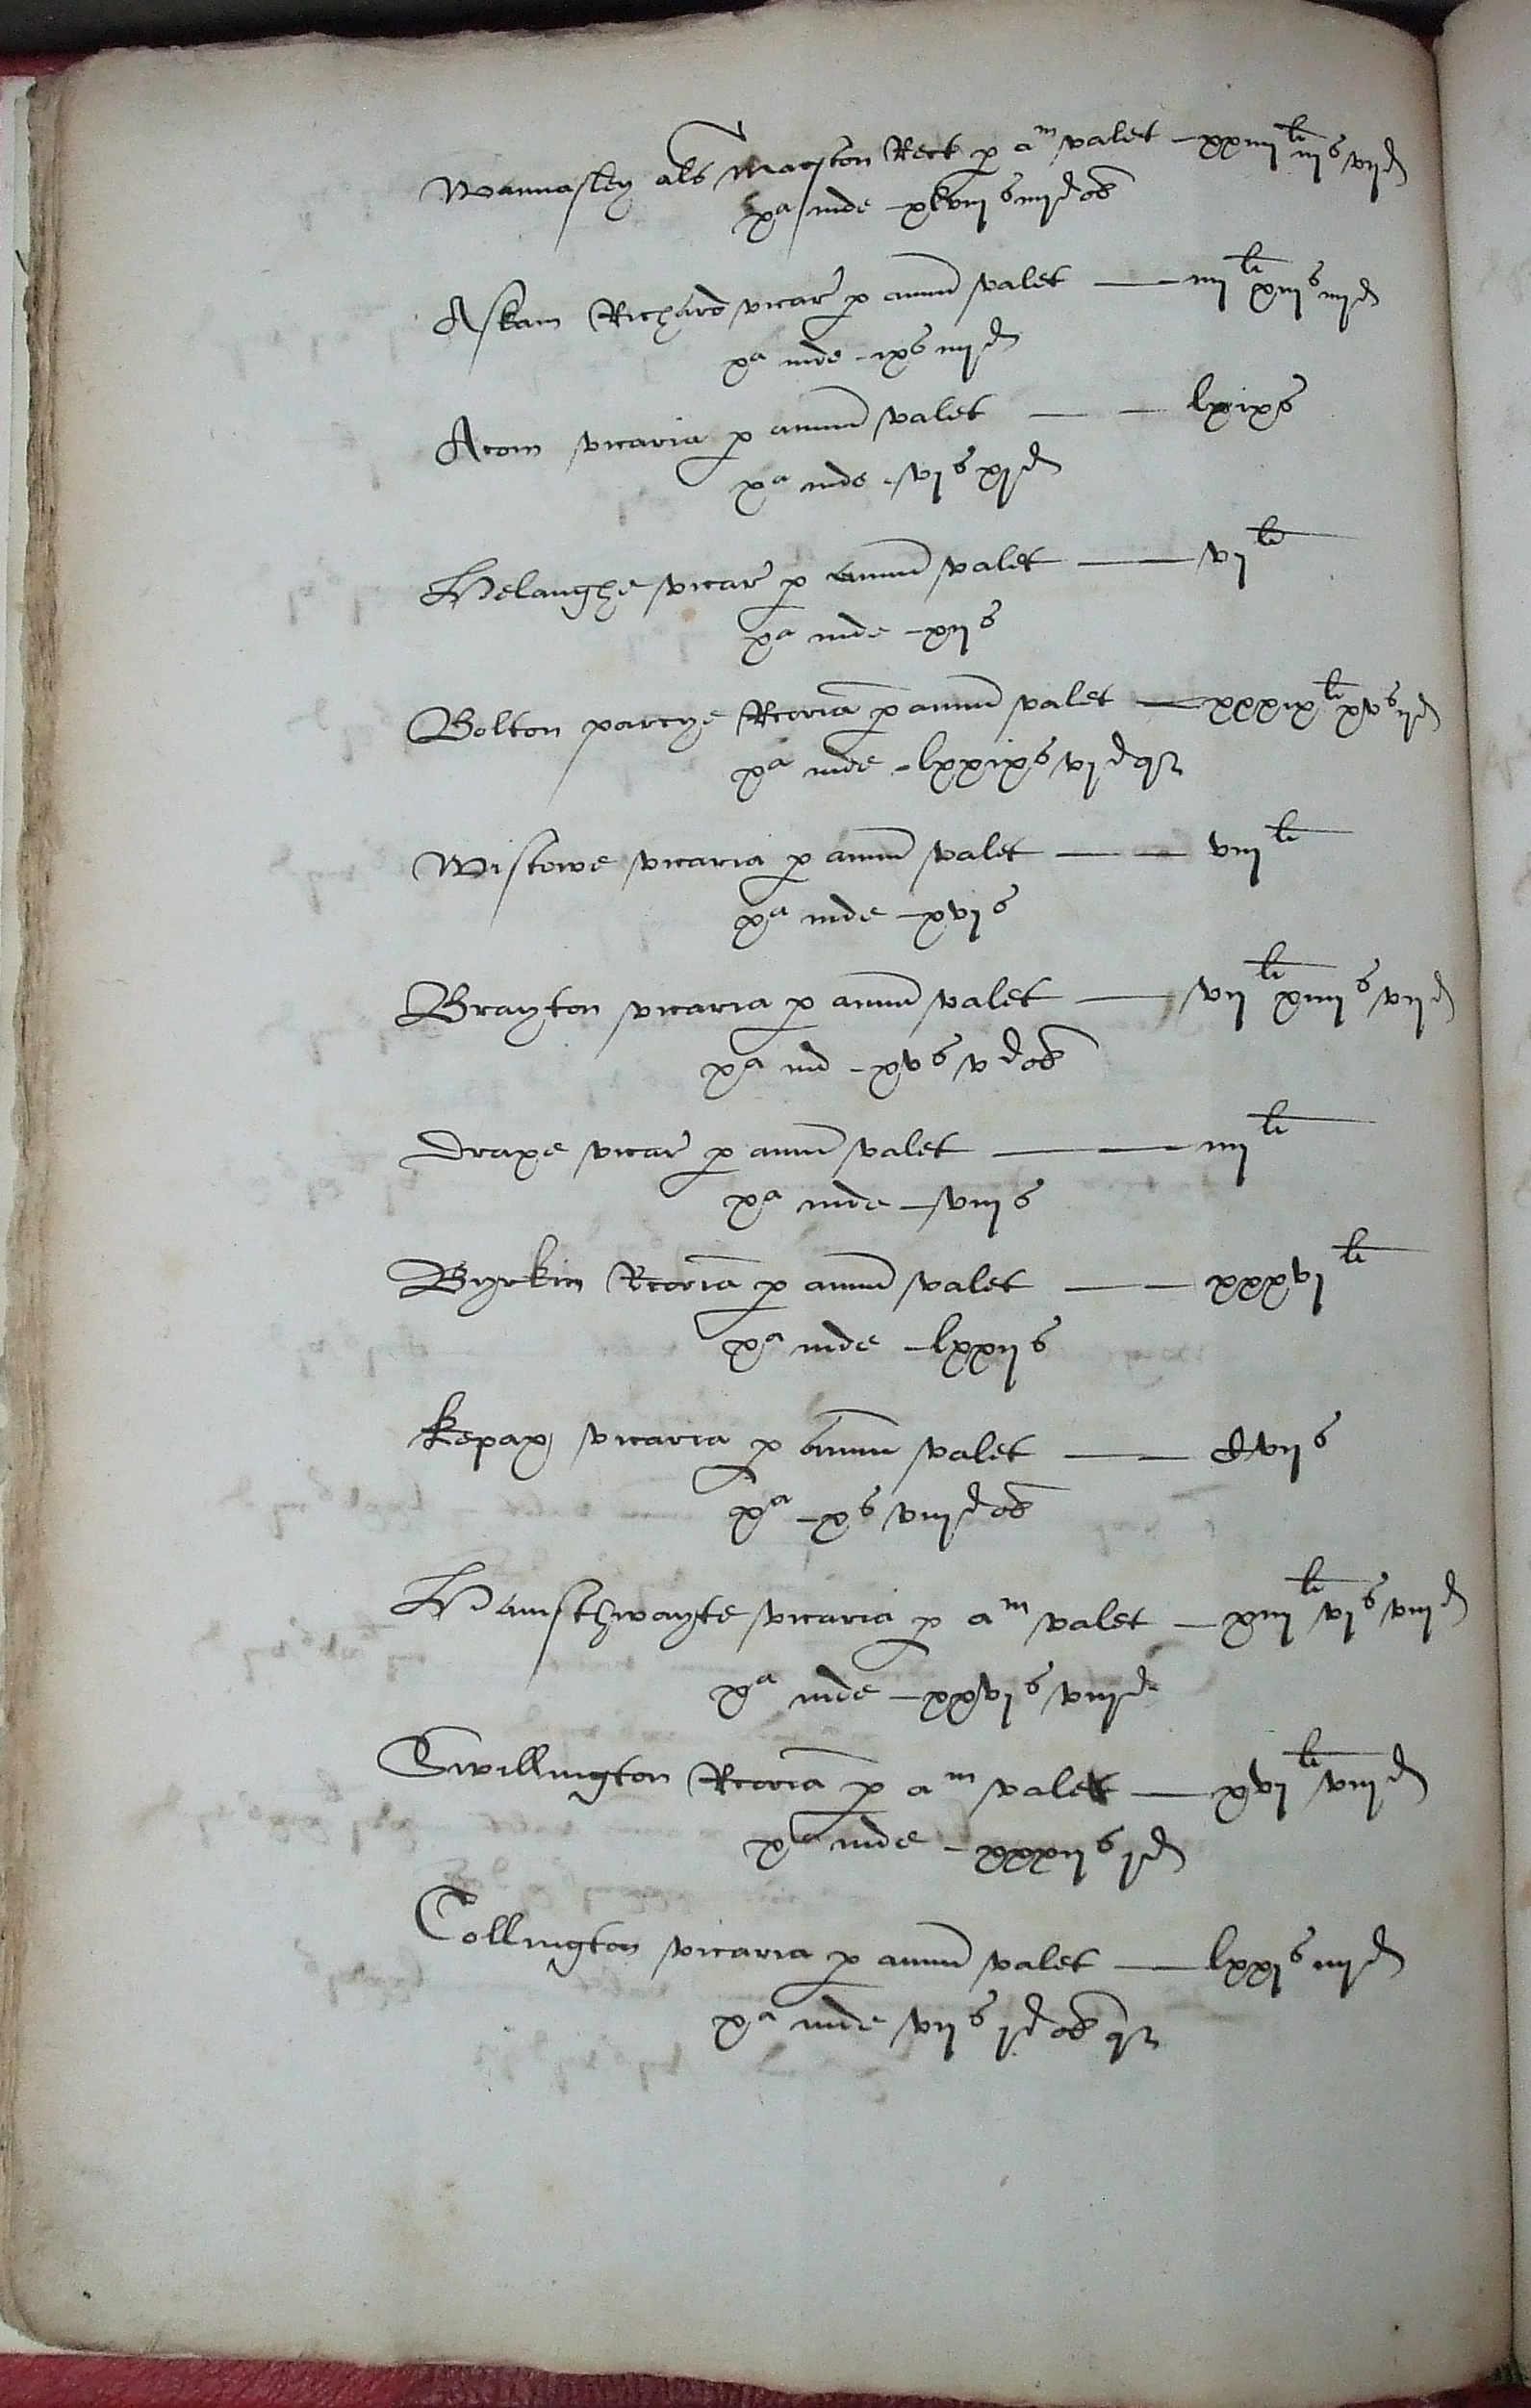 Wannasley als Marston Rect p am valet – xxiiij li iijs vijd
xa inde – xlviijs iiijd ob
Askam Richard vicar p annu valet — iiij li xiijs iiijd
xa inde – ixs iiijd
Acom vicaria p annu valet — — lxixs
xa inde – vjs xjd
Helaughe vicar p annu valet — vj li
xa inde – xijs
Bolton parcye Rcoria p annu valet — xxxix li xvs ijd
xa inde – lxxixs vjd qr
Wistowe vicaria p annu valet — — viij li
xa inde – xvjs
Brayton vicaria p annu valet — vij li xiiijs vijd
xa ind – xvs vd ob
Draxe vicar p annu valet — iiij li
xa inde – viijs
Byrkin Rcoria p annu valet — — xxxvj li
xa inde – lxxijs
Kepax vicaria p annu valet — — Cvijs
xa – xs viijd ob
Hamsthwayte vicaria p am valet – xiij li vjs viijd
xa inde – xxvjs viijd
Swillington Rcoria p am valet — xvj li viijd
xa inde – xxxijs jd
Collington vicaria p annu valet — lxxjs iiijd
xa inde vijs jd ob qr